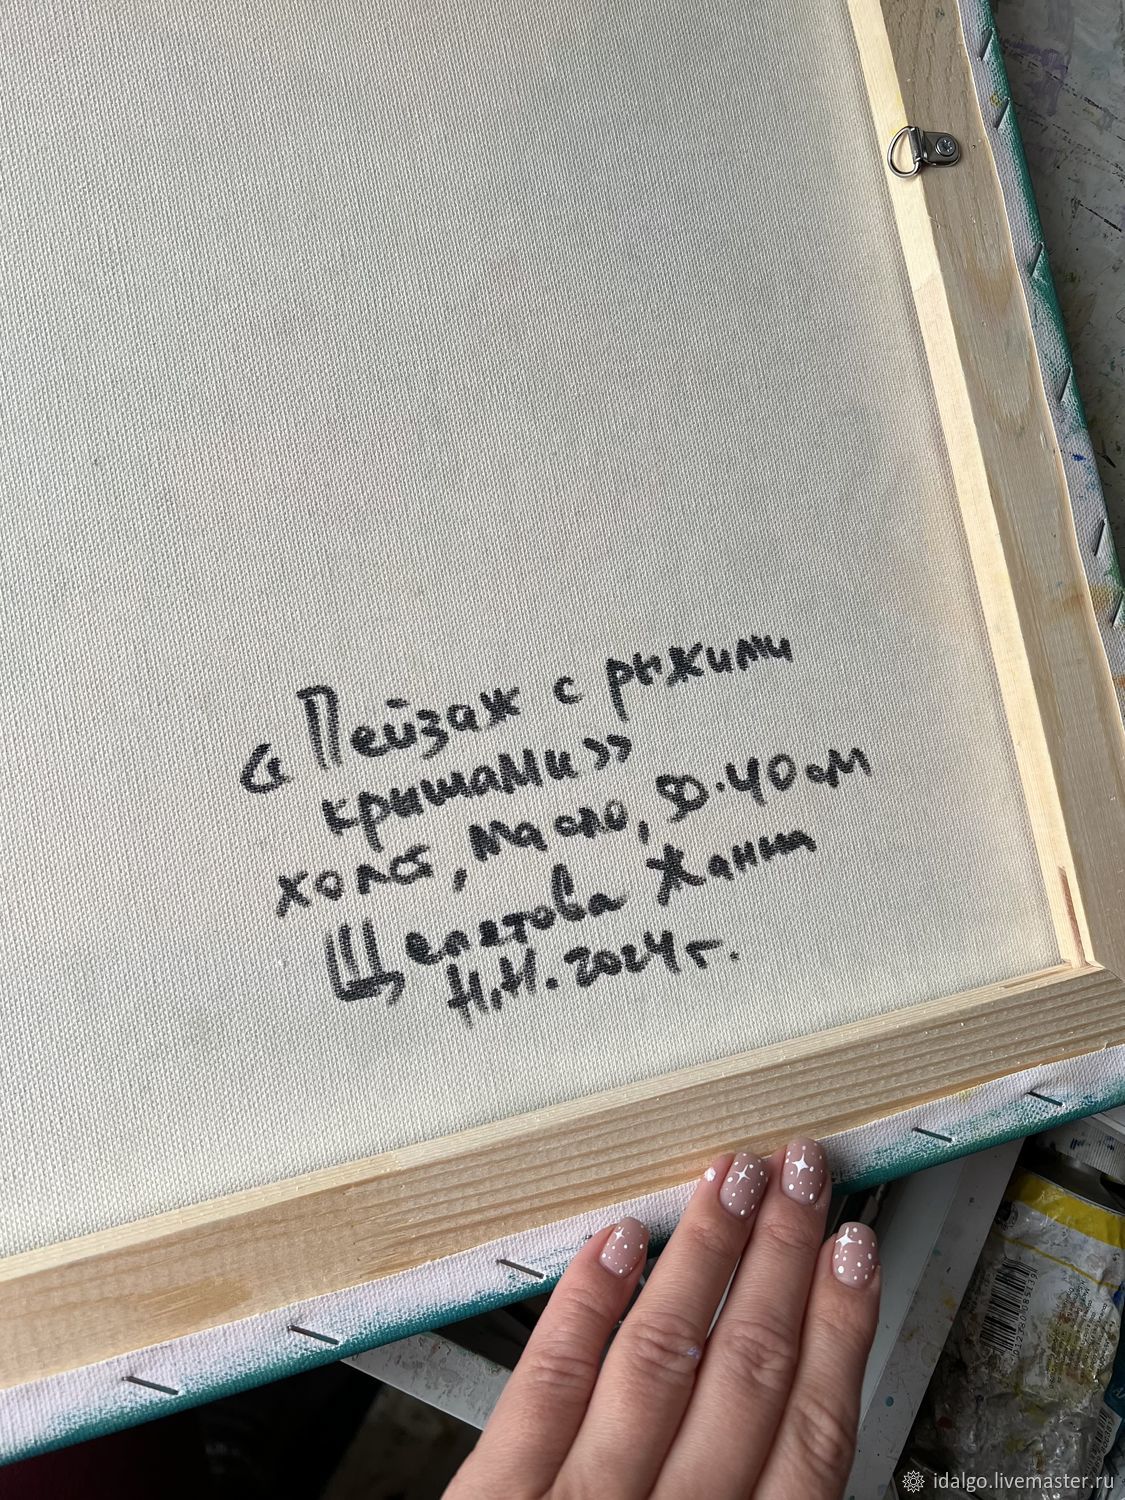 «Пейзаж с рыжими
крышами»
холст, масло, Д-40 см
Щепетова Жанна
Н.Н. 2024 г.
idalgo.livemaster.ru